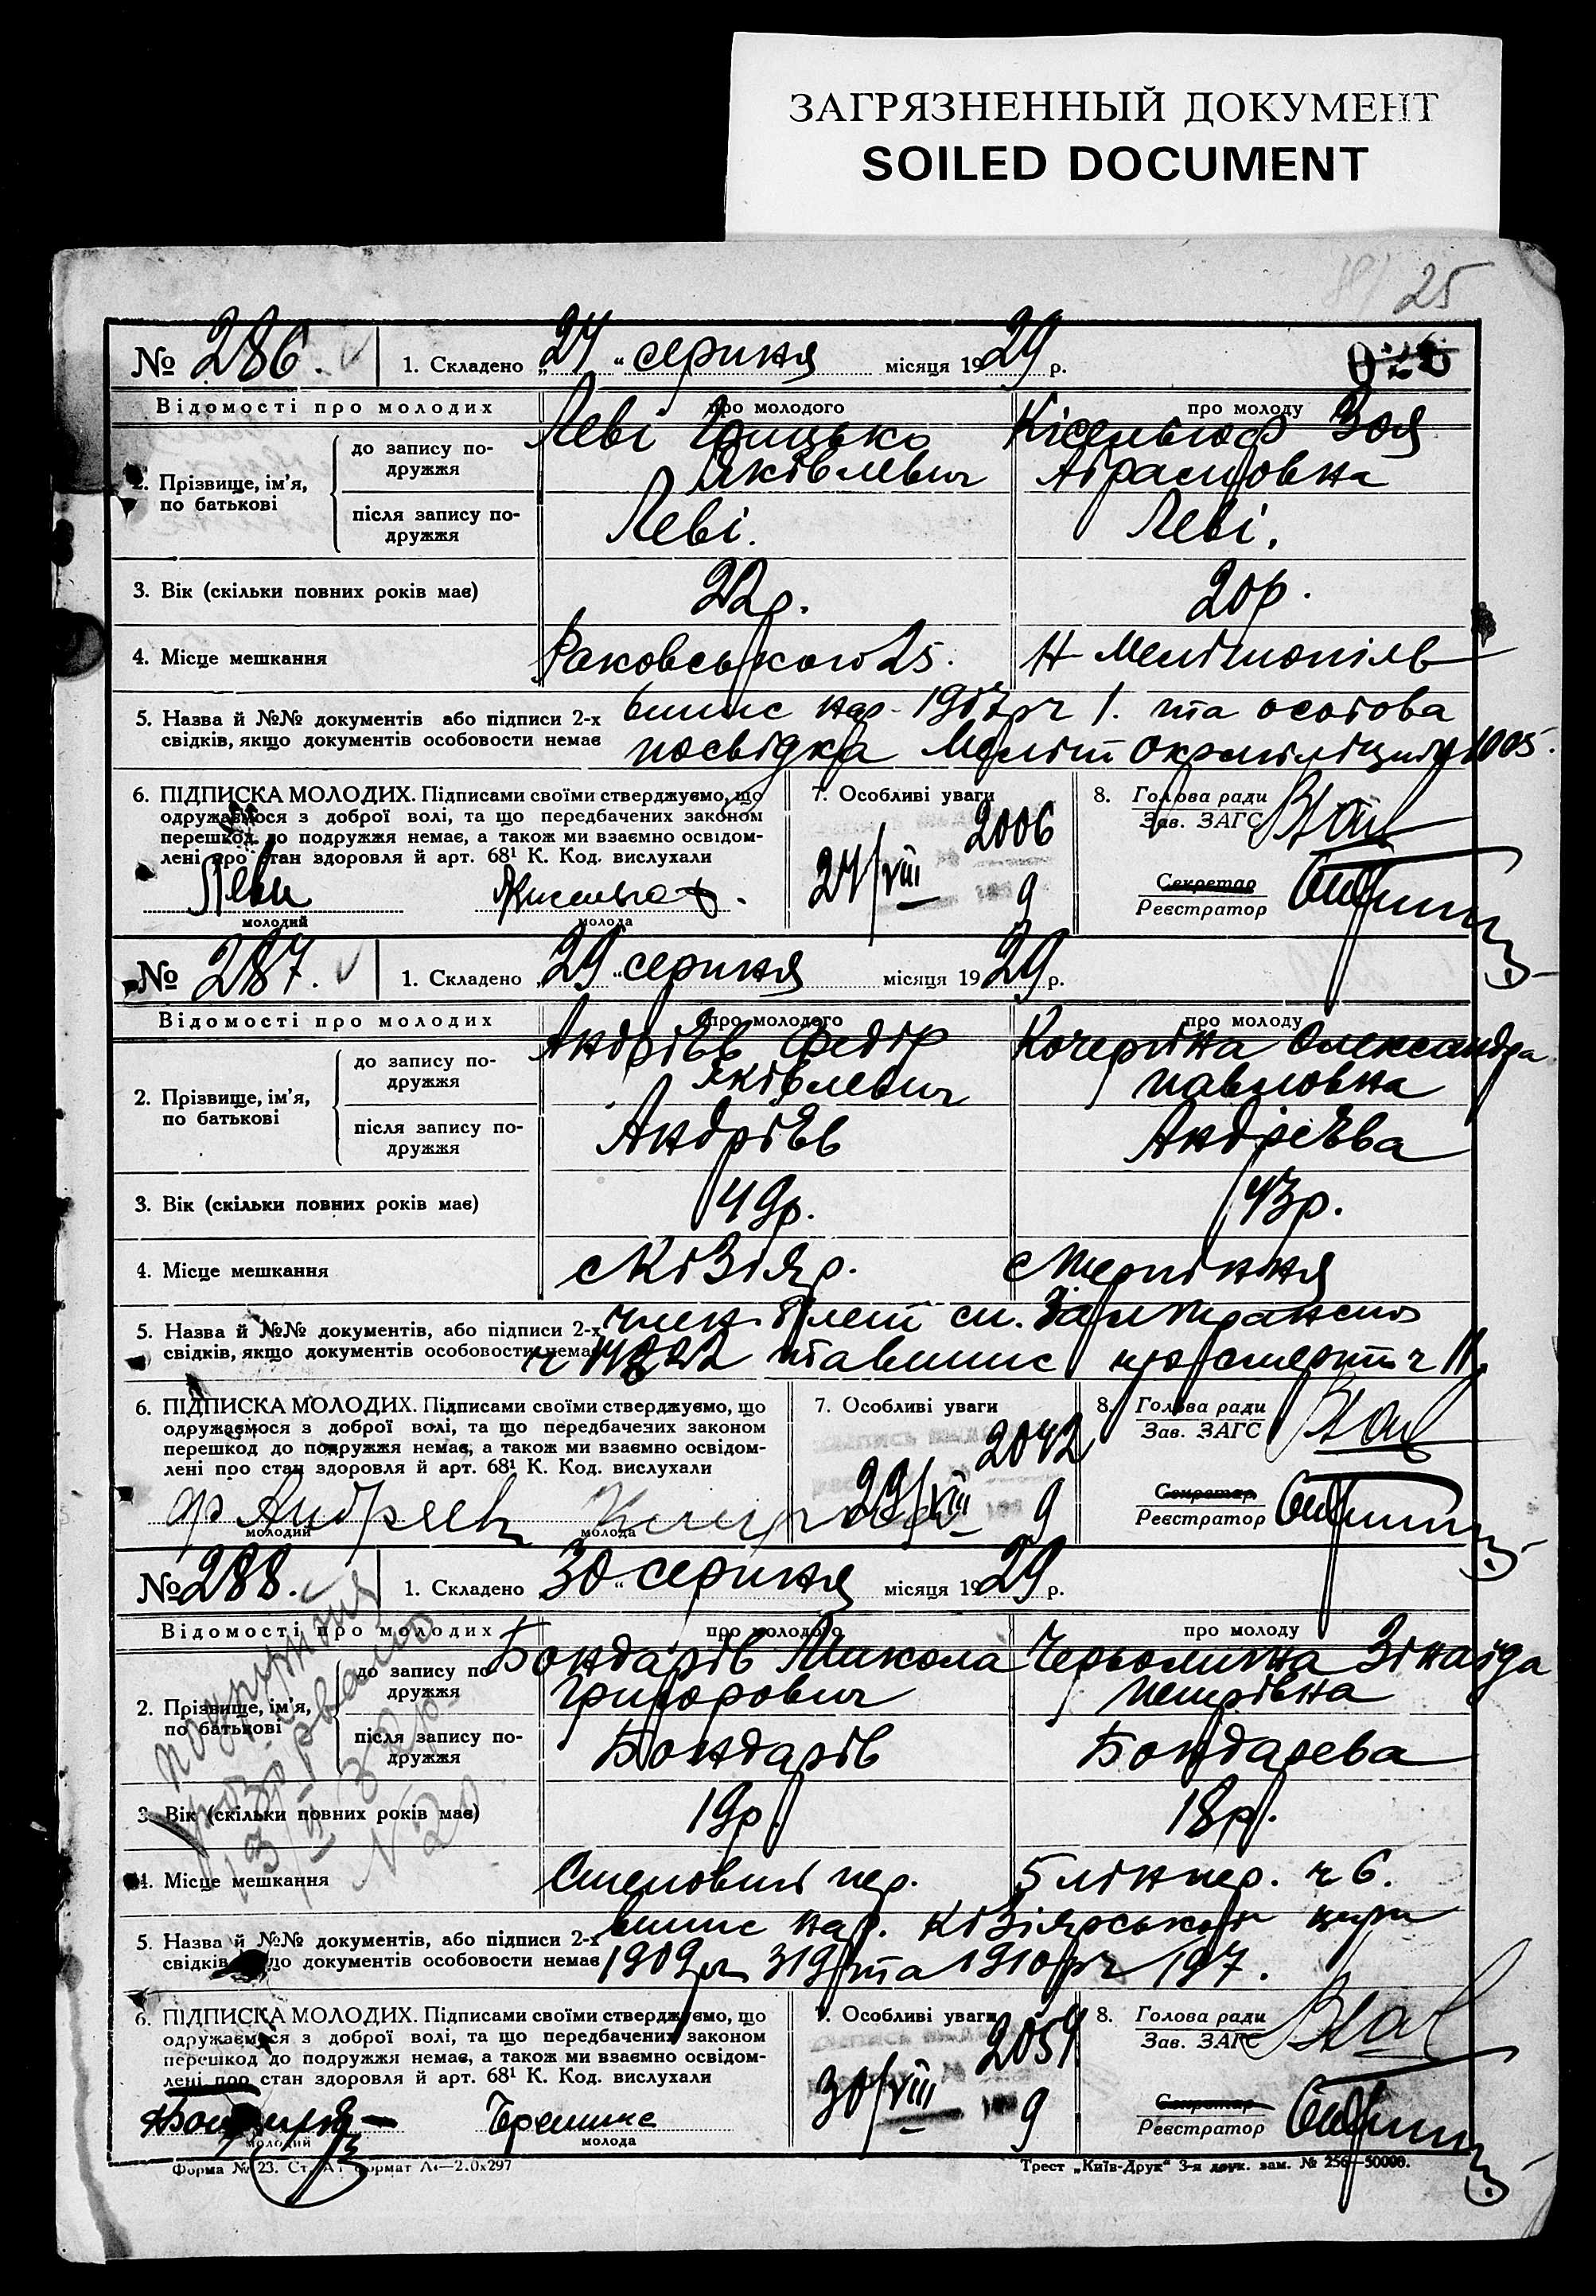 ЗАГРЯЗНЕННЫЙ ДОКУМЕНТ
SOILED DOCUMENT
25
№ 286. 1. Складено „27“ серпня місяця 1929 р.
Відомості про молодих про молодого про молоду
2. Прізвище, ім’я, по батькові
до запису подружжя
Леві Яківлевич
Кісельгоф Зоя Абрамовна
після запису подружжя
Леві. Леві.
3. Вік (скільки повних років має) 22р. 20р.
4. Місце мешкання Раковського 25. Н Мелітопіль
5. Назва й №№ документів або підписи 2-х
свідків, якщо документів особовости немає
випис нар. 1907р ч 1. та особова
посвідка Меліт Окрміліції 1005.
6. ПІДПИСКА МОЛОДИХ. Підписами своїми стверджуємо, що
одружаємося з доброї волі, та що передбачених законом
перешкод до подружжя немає, а також ми взаємно освідом-
лені про стан здоровля й арт. 68¹ К. Код. вислухали
Леви
молодий молода
7. Особливі уваги
2006
27/VIII 9
8. Голова ради
Зав. ЗАГС
Секретар
Реєстратор
№ 287. 1. Складено „29“ серпня місяця 1929 р.
Відомості про молодих про молодого про молоду
2. Прізвище, ім’я, по батькові
до запису подружжя
Андрієв Федір Яківлевич
Кочергіна Олександра Павловна
після запису подружжя
Андрієв Андрієва
3. Вік (скільки повних років має) 49р. 43р.
4. Місце мешкання с Кізіяр. с Терпіння
5. Назва й №№ документів, або підписи 2-х
свідків, якщо документів особовости немає
член. білет сп. Залтранспо
та випис про смерть ч 11.
6. ПІДПИСКА МОЛОДИХ. Підписами своїми стверджуємо, що
одружаємося з доброї волі, та що передбачених законом
перешкод до подружжя немає, а також ми взаємно освідом-
лені про стан здоровля й арт. 68¹ К. Код. вислухали
Ф Андреев
молодий молода
7. Особливі уваги
2042
29/VIII 9
8. Голова ради
Зав. ЗАГС
Секретар
Реєстратор
№ 288. 1. Складено 30“ серпня місяця 1929 р.
Відомості про молодих про молодого про молоду
подружжя
розірвано
2. Прізвище, ім’я, по батькові
до запису подружжя
Бондарів Микола Григорович
Зінаіда Петрівна
після запису подружжя
Бондарів Бондарева
3. Вік (скільки повних років має) 19р. 18р.
4. Місце мешкання Степовий пер. 5 лін пер. ч 6.
5. Назва й №№ документів, або підписи 2-х
свідків, якщо документів особовости немає
випис нар. Кізіярської церк
1909р ч 319 та 1910р ч 197.
6. ПІДПИСКА МОЛОДИХ. Підписами своїми стверджуємо, що
одружаємося з доброї волі, та що передбачених законом
перешкод до подружжя немає, а також ми взаємно освідом-
лені про стан здоровля й арт. 68¹ К. Код. вислухали
молодий молода
7. Особливі уваги
2059
30/VIII 9
8. Голова ради
Зав. ЗАГС
Секретар
Реєстратор
Форма № 23.
Трест „Київ-Друк“ 3-я друк. зам. № 256—50000.